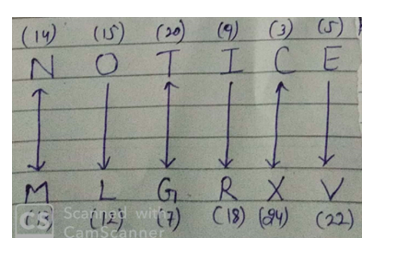 (14) (15) (20) (9) (3) (5)
N O T I C E
M L G R X V
(13) (12) (7) (18) (24) (22)
CS Scanned with
CamScanner